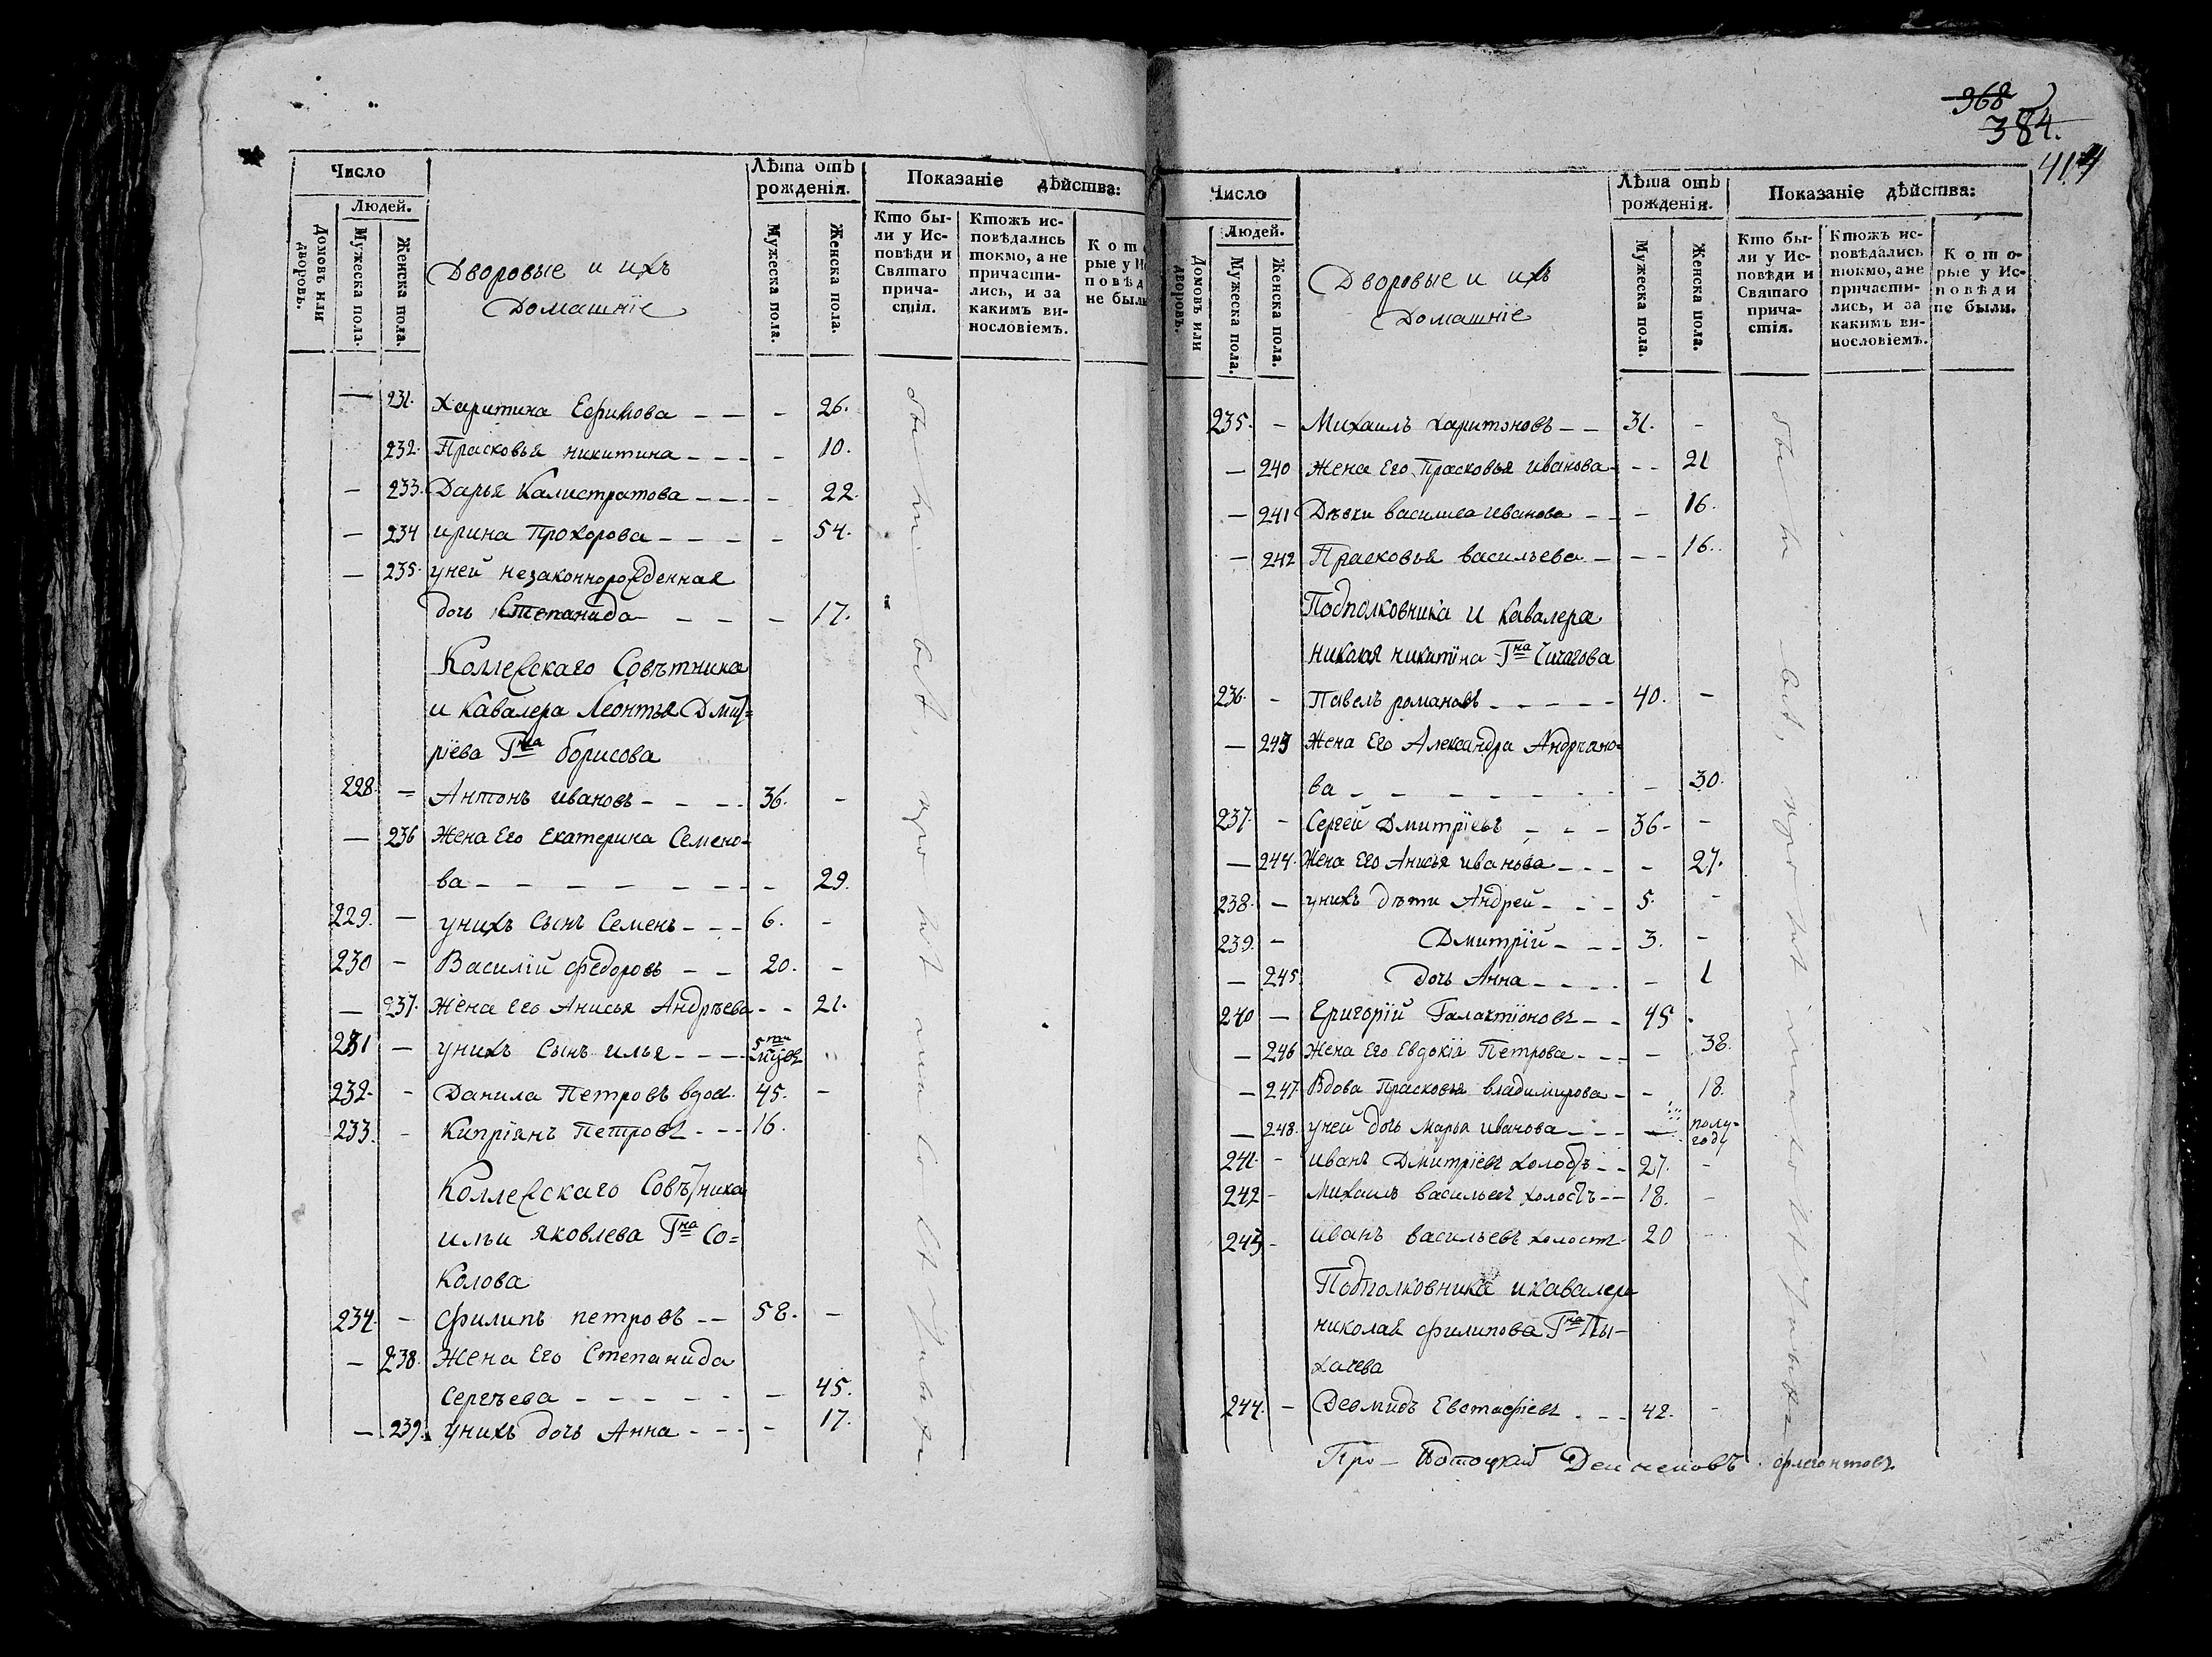 Число
Людей.
Домовъ или дворовъ.
Мужеска пола.
Женска пола.
Дворовые и ихъ
Домашнїе
Лѣта отъ
рожденїя.
Мужеска пола.
Женска пола.
Показанїе дѣйства:
Кто бы-
ли у Ис-
повѣди и
Святаго
прича-
стїя.
Ктожъ ис-
повѣдались
токмо, а не
причасти-
лись, и за
какимъ ви-
нословїемъ.
Кото
рые у И
повѣд
не были
— 231. Харитина Ефимова — — - 26.
232. Прасковья никитина - - - - 10.
— 233. Дарья Калистратова - - - - 22.
— 234 ирина Прохорова - - - - 54.
— 235. уней незаконнорожденная
дочь Степанида - - - - 17.
Коллежскаго Совѣтника
и Кавалера Леонтья Дмит=
рїева Гна борисова
228. - Антонъ ивановъ - - - - 36. -
— 236 Жена Его Екатерина Семено-
ва - - - - - - - - 29.
229. — унихъ Сынъ Семенъ - - - 6. -
230 - Василїй федоровъ - - 20. -
— 237. Жена Его Анисья Андрѣева - - 21.
231 — унихъ Сынъ илья - - - - 5ти мцов
232. - Данила Петровъ вдов. 45. -
233. - Кипрїянъ Петровъ - - - 16.
Коллежскаго Совѣтника
ильи яковлева Гна Со=
колова
234. - филипъ петровъ - - 58. -
— 238. Жена Его Степанида
Сергѣева - - - - - - 45.
— 239. унихъ дочь Анна - - - - 17.
368
384.
414
Число
Людей.
Домовъ или дворовъ.
Мужеска пола.
Женска пола.
Дворовые и ихъ
Домашнїе
Лѣта отъ
рожденїя.
Мужеска пола.
Женска пола.
Показанїе дѣйства:
Кто бы-
ли у Ис-
повѣди и
Святаго
прича-
стїя.
Ктожъ ис-
повѣдались
токмо, а не
причасти-
лись, и за
какимъ ви-
нословїемъ.
Кото-
рые у Ис-
повѣди
не были.
235. - Михаилъ харитоновъ - - 31. -
— 240 Жена Его Прасковья иванова - - - 21
— 241 Дѣвки василиса иванова - - - 16.
- 242 Прасковья васильева - - - 16.
Подполковника и Кавалера
николая никитина Гна Чичагова
236. - Павелъ романовъ - - - - - 40. -
— 243 Жена Его Александра Андрѣяно-
ва - - - - - - - - 30.
237. - Сергей Дмитрїевъ - - - 36- -
— 244. Жена Его Анисья иванова - - - - 27.
238. — унихъ дѣти Андрей - - - 5. -
239. - Дмитрїй - - - 3. -
— 245 дочь Анна - - - - - 1
240 — Григорїй Галактїоновъ - - 45 -
— 246 Жена Его Евдокїя Петрова - - - - 38.
— 247. Вдова Прасковья владимирова - - 18.
— 248. уней дочь марья иванова - - - — полу-
году
241. - иванъ Дмитрїевъ холостъ - - 27. -
242 - Михаилъ васильевъ холостъ - - 18. -
243 - иванъ васильевъ холостъ - 20 -
Подполковника икавалера
николая филипова Гна Пы-
хачева
244. - Деомидъ Евстафїевъ - - - 42. -